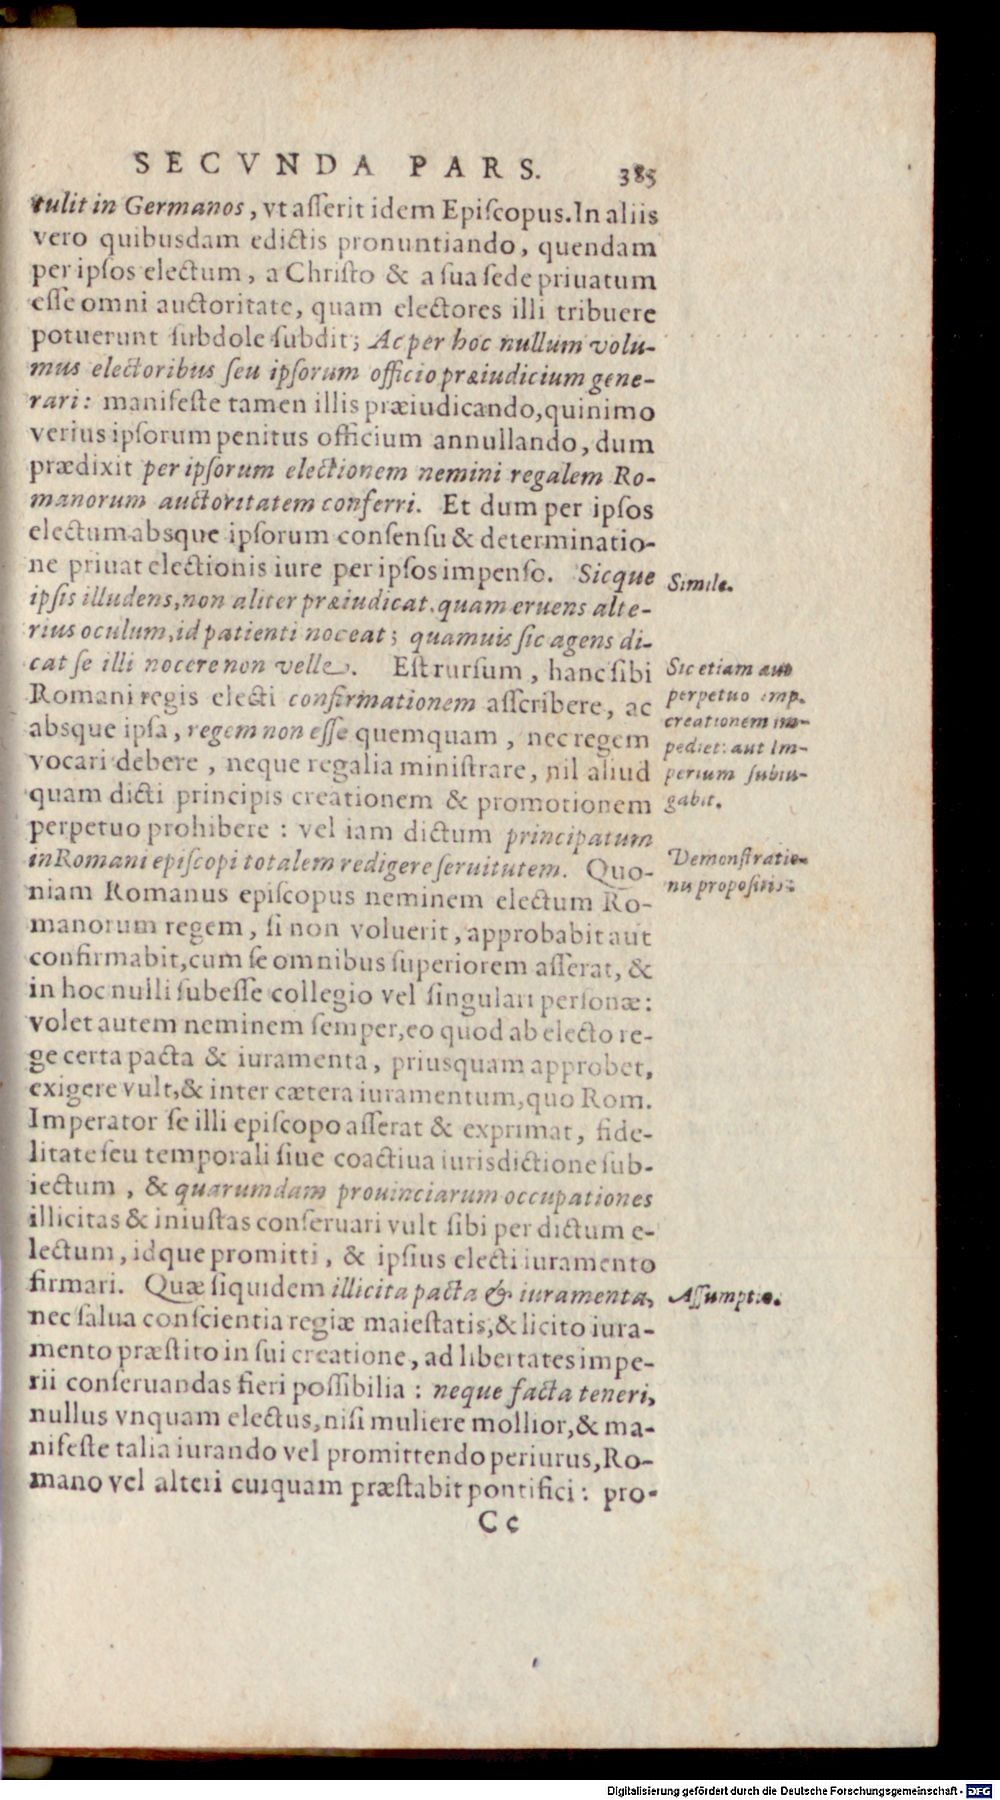 SECVNDA PARS. 385
tulit in Germanos, vt asserit idem Episcopus. In aliis
vero quibusdam edictis pronuntiando, quendam
per ipsos electum, a Christo & a sua sede priuatum
esse omni auctoritate, quam electores illi tribuere
potuerunt subdole subdit; Ac per hoc nullum volu-
mus electoribus seu ipsorum officio præiudicium gene-
rari: manifeste tamen illis præiudicando, quinimo
verius ipsorum penitus officium annullando, dum
prædixit per ipsorum electionem nemini regalem Ro-
manorum auctoritatem conferri. Et dum per ipsos
electum absque ipsorum consensu & determinatio-
ne priuat electionis iure per ipsos impenso. Sicque
ipsis illudens, non aliter præiudicat, quam eruens alte-
rius oculum, id patienti noceat; quamuis sic agens di-
cat se illi nocere non velle. Est rursum, hanc sibi
Romani regis electi confirmationem asscribere, ac
absque ipsa, regem non esse quemquam, nec regem
vocari debere, neque regalia ministrare, nil aliud
quam dicti principis creationem & promotionem
perpetuo prohibere: vel iam dictum principatum
in Romani episcopi totalem redigere seruitutem. Quo-
niam Romanus episcopus neminem electum Ro-
manorum regem, si non voluerit, approbabit aut
confirmabit, cum se omnibus superiorem asserat, &
in hoc nulli subesse collegio vel singulari personæ:
volet autem neminem semper, eo quod ab electo re-
ge certa pacta & iuramenta, priusquam approbet,
exigere vult, & inter cætera iuramentum, quo Rom.
Imperator se illi episcopo asserat & exprimat, fide-
litate seu temporali siue coactiua iurisdictione sub-
iectum, & quarumdam prouinciarum occupationes
illicitas & iniustas conseruari vult sibi per dictum e-
lectum, idque promitti, & ipsius electi iuramento
firmari. Quæ siquidem illicita pacta & iuramenta,
nec salua conscientia regiæ maiestatis, & licito iura-
mento præstito in sui creatione, ad libertates impe-
rii conseruandas fieri possibilia: neque facta teneri,
nullus vnquam electus, nisi muliere mollior, & ma-
nifeste talia iurando vel promittendo periurus, Ro-
mano vel alteri cuiquam præstabit pontifici: pro-
Cc
Simile.
Sic etiam aut
perpetuo imp.
creationem im-
pediet: aut Im-
perium subiu-
gabit.
Demonstratio-
nis propositio:
Assumptio.
Digitalisierung gefördert durch die Deutsche Forschungsgemeinschaft - DFG